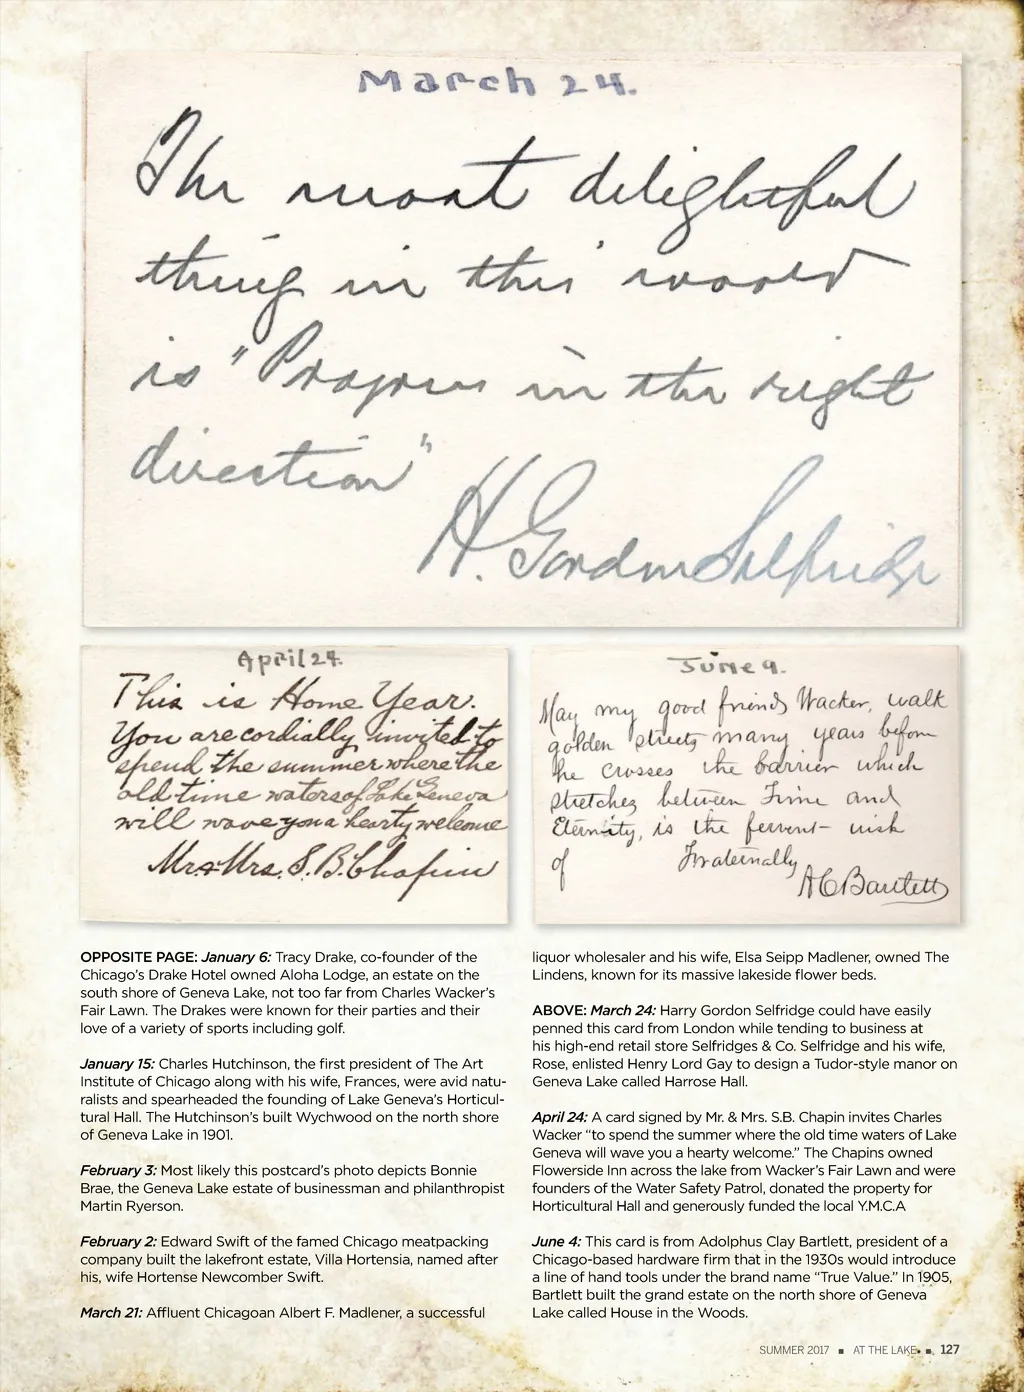 March 24.
The most delightful
thing in this world
is "Progress in the right
direction"
H. Gordon Selfridge
April 24.
This is Home Year.
You are cordially invited to
spend the summer where the
old time waters of Lake Geneva
will wave you a hearty welcome
Mr & Mrs. S. B. Chapin
June 9.
May my good friend Wacker, walk
golden streets many years before
he crosses the barrier which
stretches between Time and
Eternity, is the fervent wish
of Fraternally
A C Bartlett
OPPOSITE PAGE: January 6: Tracy Drake, co-founder of the
Chicago's Drake Hotel owned Aloha Lodge, an estate on the
south shore of Geneva Lake, not too far from Charles Wacker's
Fair Lawn. The Drakes were known for their parties and their
love of a variety of sports including golf.
January 15: Charles Hutchinson, the first president of The Art
Institute of Chicago along with his wife, Frances, were avid natu-
ralists and spearheaded the founding of Lake Geneva's Horticul-
tural Hall. The Hutchinson's built Wychwood on the north shore
of Geneva Lake in 1901.
February 3: Most likely this postcard's photo depicts Bonnie
Brae, the Geneva Lake estate of businessman and philanthropist
Martin Ryerson.
February 2: Edward Swift of the famed Chicago meatpacking
company built the lakefront estate, Villa Hortensia, named after
his, wife Hortense Newcomber Swift.
March 21: Affluent Chicagoan Albert F. Madlener, a successful
liquor wholesaler and his wife, Elsa Seipp Madlener, owned The
Lindens, known for its massive lakeside flower beds.
ABOVE: March 24: Harry Gordon Selfridge could have easily
penned this card from London while tending to business at
his high-end retail store Selfridges & Co. Selfridge and his wife,
Rose, enlisted Henry Lord Gay to design a Tudor-style manor on
Geneva Lake called Harrose Hall.
April 24: A card signed by Mr. & Mrs. S.B. Chapin invites Charles
Wacker "to spend the summer where the old time waters of Lake
Geneva will wave you a hearty welcome." The Chapins owned
Flowerside Inn across the lake from Wacker's Fair Lawn and were
founders of the Water Safety Patrol, donated the property for
Horticultural Hall and generously funded the local Y.M.C.A
June 4: This card is from Adolphus Clay Bartlett, president of a
Chicago-based hardware firm that in the 1930s would introduce
a line of hand tools under the brand name "True Value." In 1905,
Bartlett built the grand estate on the north shore of Geneva
Lake called House in the Woods.
SUMMER 2017 ■ AT THE LAKE ■ 127